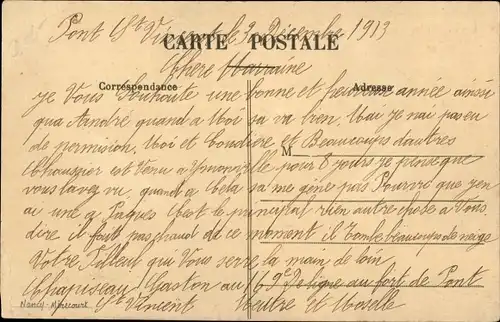 Pont St Vincent le 3 Décembre 1913
CARTE POSTALE
Chère Marraine
Correspondance
Adresse
je Vous Souhaite une bonne et heureuse année ainsi
qua Arndré quand a Moi sa va bien. Moi je nai pas eu
de permision, Moi et Beaucoups dautres
M
est Venu a pour 8 jours je pense que
vous lavez vu, quand a Cela sa me gène pas Pourvu que jen
ai une a Paques Cest le principal rien autre chose a Vous
dire il fait pas chaud de ce moment il Tombe beaucoups de neige
Votre Filleul qui Vous serre la main de loin
Chapiseau Gaston au 69e De ligne au fort de Pont
St Vincent Meurtre et Moselle
Nancy-Mirecourt